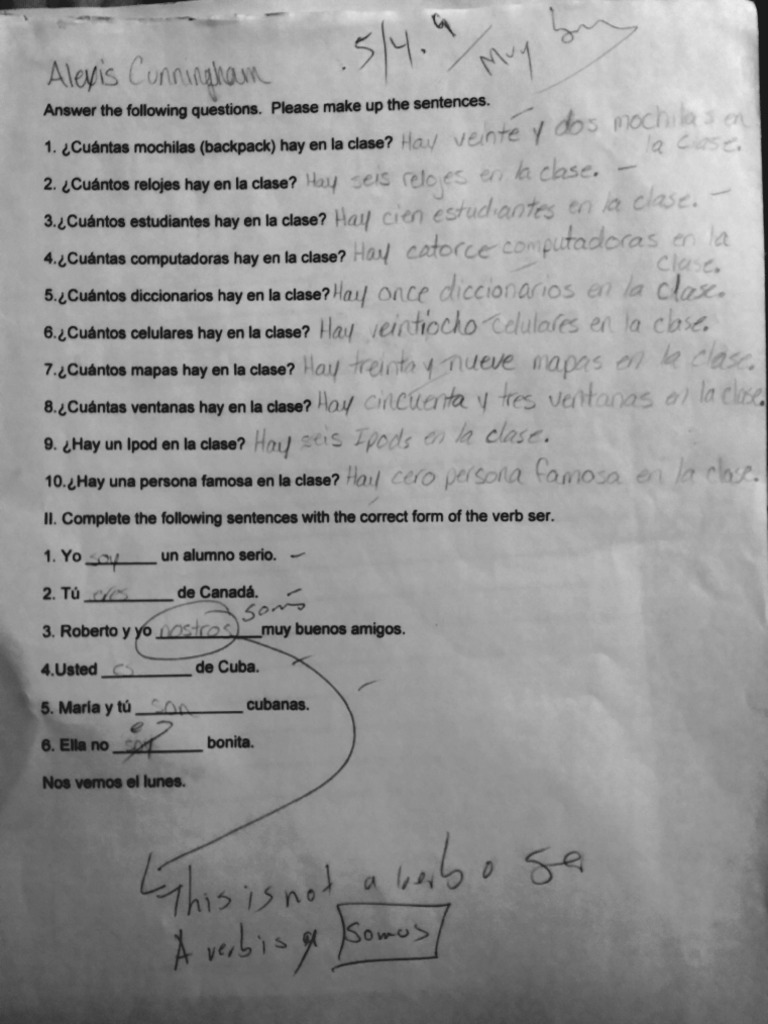 .5/4.9 / Muy
Alexis Cunningham
Answer the following questions. Please make up the sentences.
1. ¿Cuántas mochilas (backpack) hay en la clase? Hay veinte y dos mochilas en
la clase.
2. ¿Cuántos relojes hay en la clase? Hay seis relojes en la clase.
3.¿Cuántos estudiantes hay en la clase? Hay cien estudiantes en la clase.
4.¿Cuántas computadoras hay en la clase? Hay catorce computadoras en la
clase.
5.¿Cuántos diccionarios hay en la clase? Hay once diccionarios en la clase.
6.¿Cuántos celulares hay en la clase? Hay veintiocho celulares en la clase.
7.¿Cuántos mapas hay en la clase? Hay treinta y nueve mapas en la clase.
8.¿Cuántas ventanas hay en la clase? Hay cincuenta y tres ventanas en la clase.
9. ¿Hay un Ipod en la clase? Hay seis Ipods en la clase.
10.¿Hay una persona famosa en la clase? Hay cero persona famosa en la clase.
II. Complete the following sentences with the correct form of the verb ser.
1. Yo soy un alumno serio.
2. Tú eres de Canadá.
somos
3. Roberto y yo nostros muy buenos amigos.
4.Usted es de Cuba.
5. María y tú son cubanas.
6. Ella no bonita.
Nos vemos el lunes.
This is not a verb o se
A verb is somos